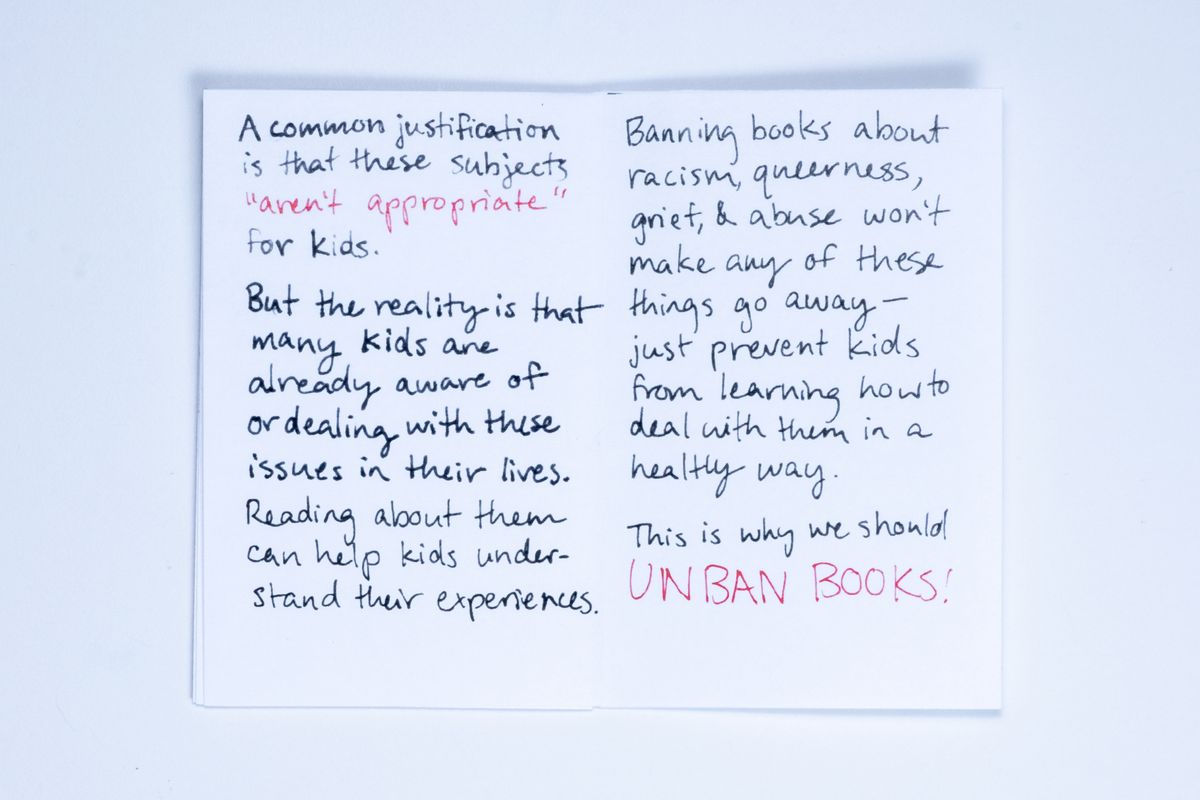 A common justification
is that these subjects
"aren't appropriate"
for kids.
But the reality is that
many kids are
already aware of
or dealing with these
issues in their lives.
Reading about them
can help kids under-
stand their experiences.
Banning books about
racism, queerness,
grief, & abuse won't
make any of these
things go away—
just prevent kids
from learning how to
deal with them in a
healthy way.
This is why we should
UNBAN BOOKS!